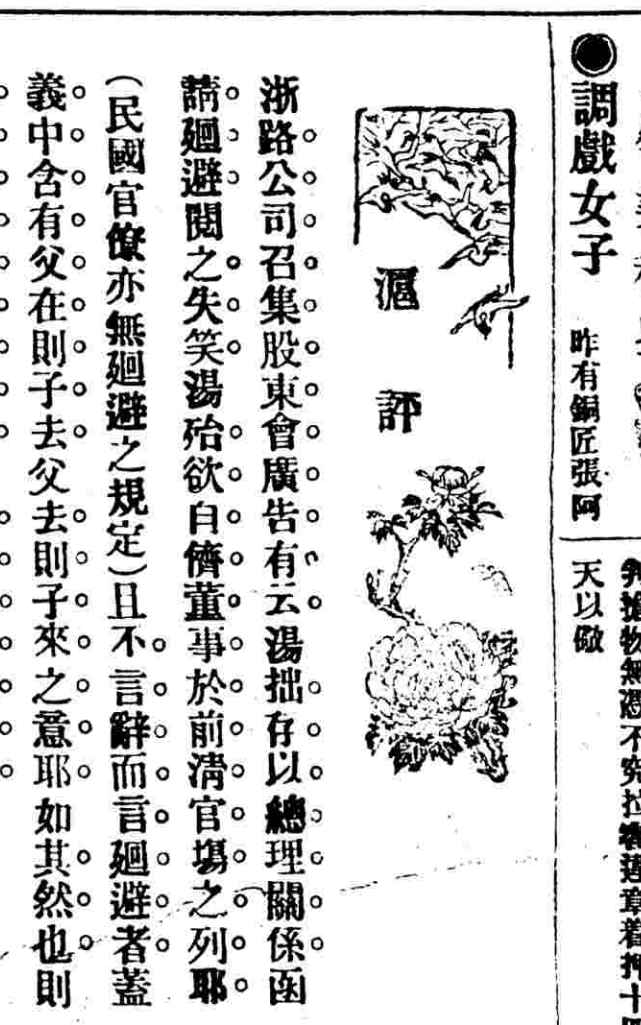 ●調戲女子 昨有銅匠張阿
天以儆
滬評
浙路公司召集股東會廣告有云湯拙存以總理關係函
請廻避閱之失笑湯殆欲自儕董事於前淸官塲之列耶
(民國官僚亦無廻避之規定)且不言辭而言廻避者蓋
義中含有父在則子去父去則子來之意耶如其然也則